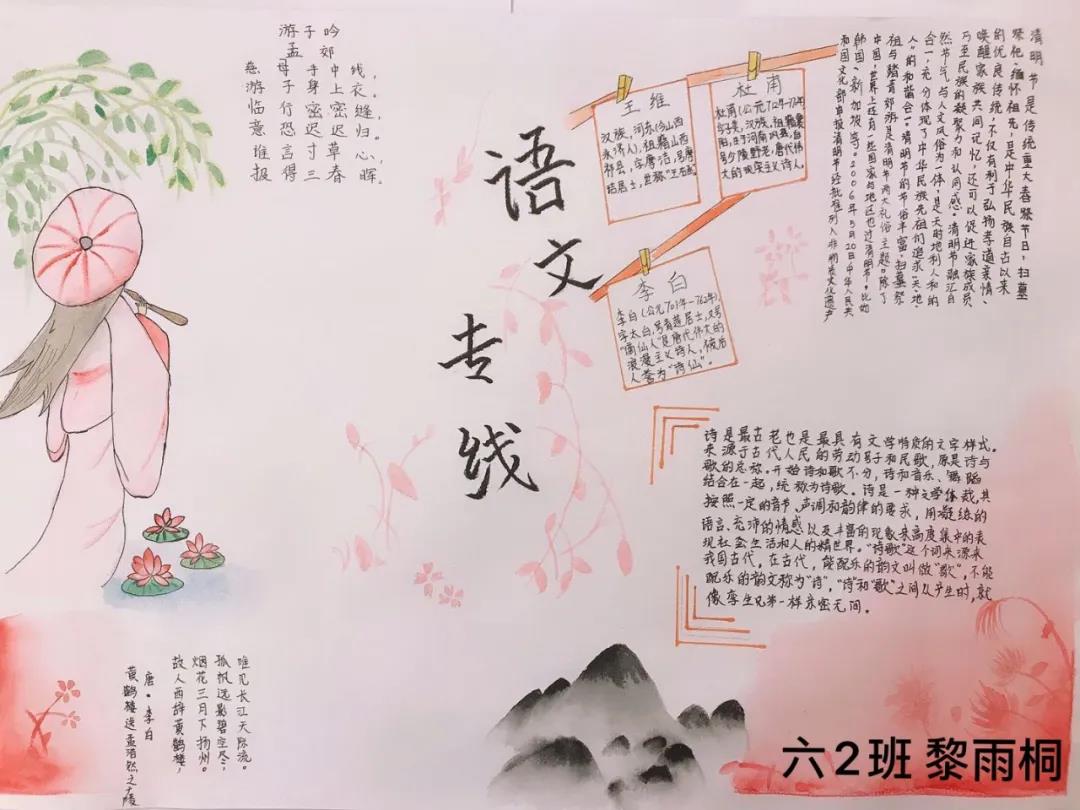 游子吟
孟郊
慈母手中线，
游子身上衣。
临行密密缝，
意恐迟迟归。
谁言寸草心，
报得三春晖。
语文专线
王维
汉族，河东(今山西
永济人)，祖籍山西
祁县，字摩诘，号摩
诘居士，世称"王右丞"
杜甫
杜甫(公元712年-770年)
字子美，汉族，祖籍襄
阳，生于河南巩县，自
号少陵野老，唐代伟
大的现实主义诗人
李白
李白(公元701年—762年)
字太白，号青莲居士，又号
"谪仙人"是唐代伟大的
浪漫主义诗人，被后
人誉为"诗仙"。
清明节是传统重大春祭节日，扫墓
祭祀、缅怀祖先，是中华民族自古以来
的优良传统，不仅有利于弘扬孝道亲情、
唤醒家族共同记忆，还可以促进家族成员
乃至民族的凝聚力和认同感。清明节融汇自
然节气与人文风俗为一体，是天时地利人和的
合一，充分体现了中华民族先祖们追求"天、地、
人"的和谐合一。清明节的节俗丰富，扫墓祭
祖与踏青郊游是清明节两大礼俗主题。除了
中国，世界上还有一些国家与地区也过清明节。比如
韩国、新加坡等。2006年5月20日中华人民共
和国文化部申报清明节经批准列入非物质文化遗产
诗是最古老也是最具有文学特质的文字样式。
来源于古代人民的劳动号子和民歌，原是诗与
歌的总称。开始诗和歌不分，诗和音乐、舞蹈
结合在一起，统称为诗歌。诗是一种文学体裁，其
按照一定的音节、声调和韵律的要求，用凝练的
语言、充沛的情感以及丰富的现象来高度集中的表
现社会生活和人的精世界。"诗歌"这个词来源来
我国古代，在古代，能配乐的韵文叫做"歌"，不能
配乐的韵文称为"诗"，"诗和"歌"之间从产生时，就
像孪生兄弟一样亲密无间。
唯见长江天际流。
孤帆远影碧空尽，
烟花三月下扬州。
故人西辞黄鹤楼，
唐·李白
黄鹤楼送孟浩然之广陵
六2班 黎雨桐